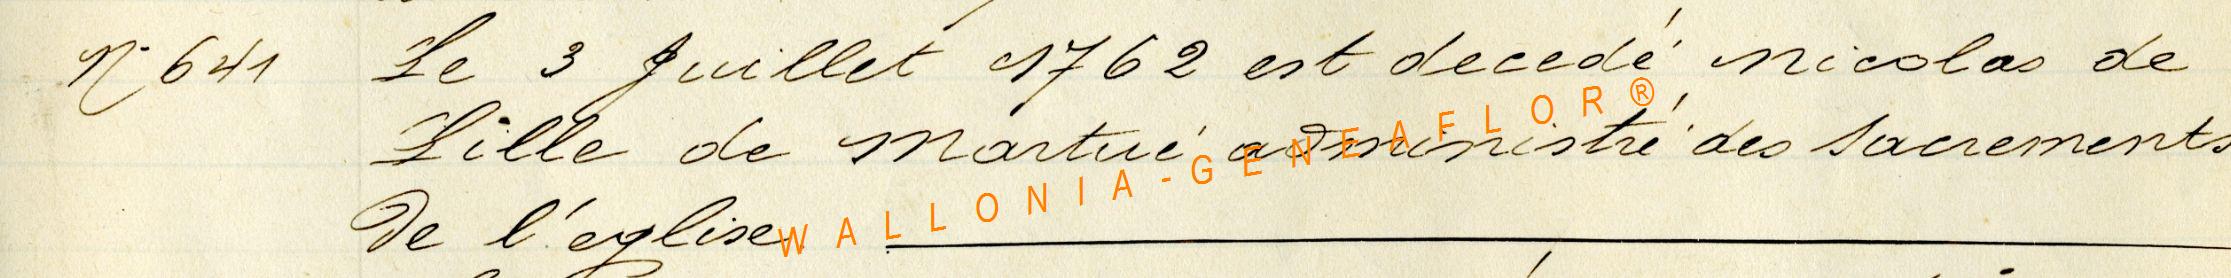 N° 641 Le 3 Juillet 1762 est decedé Nicolas de
Lille de Martué administré des Sacrements
De l'église.
WALLONIA-GENEAFLOR®